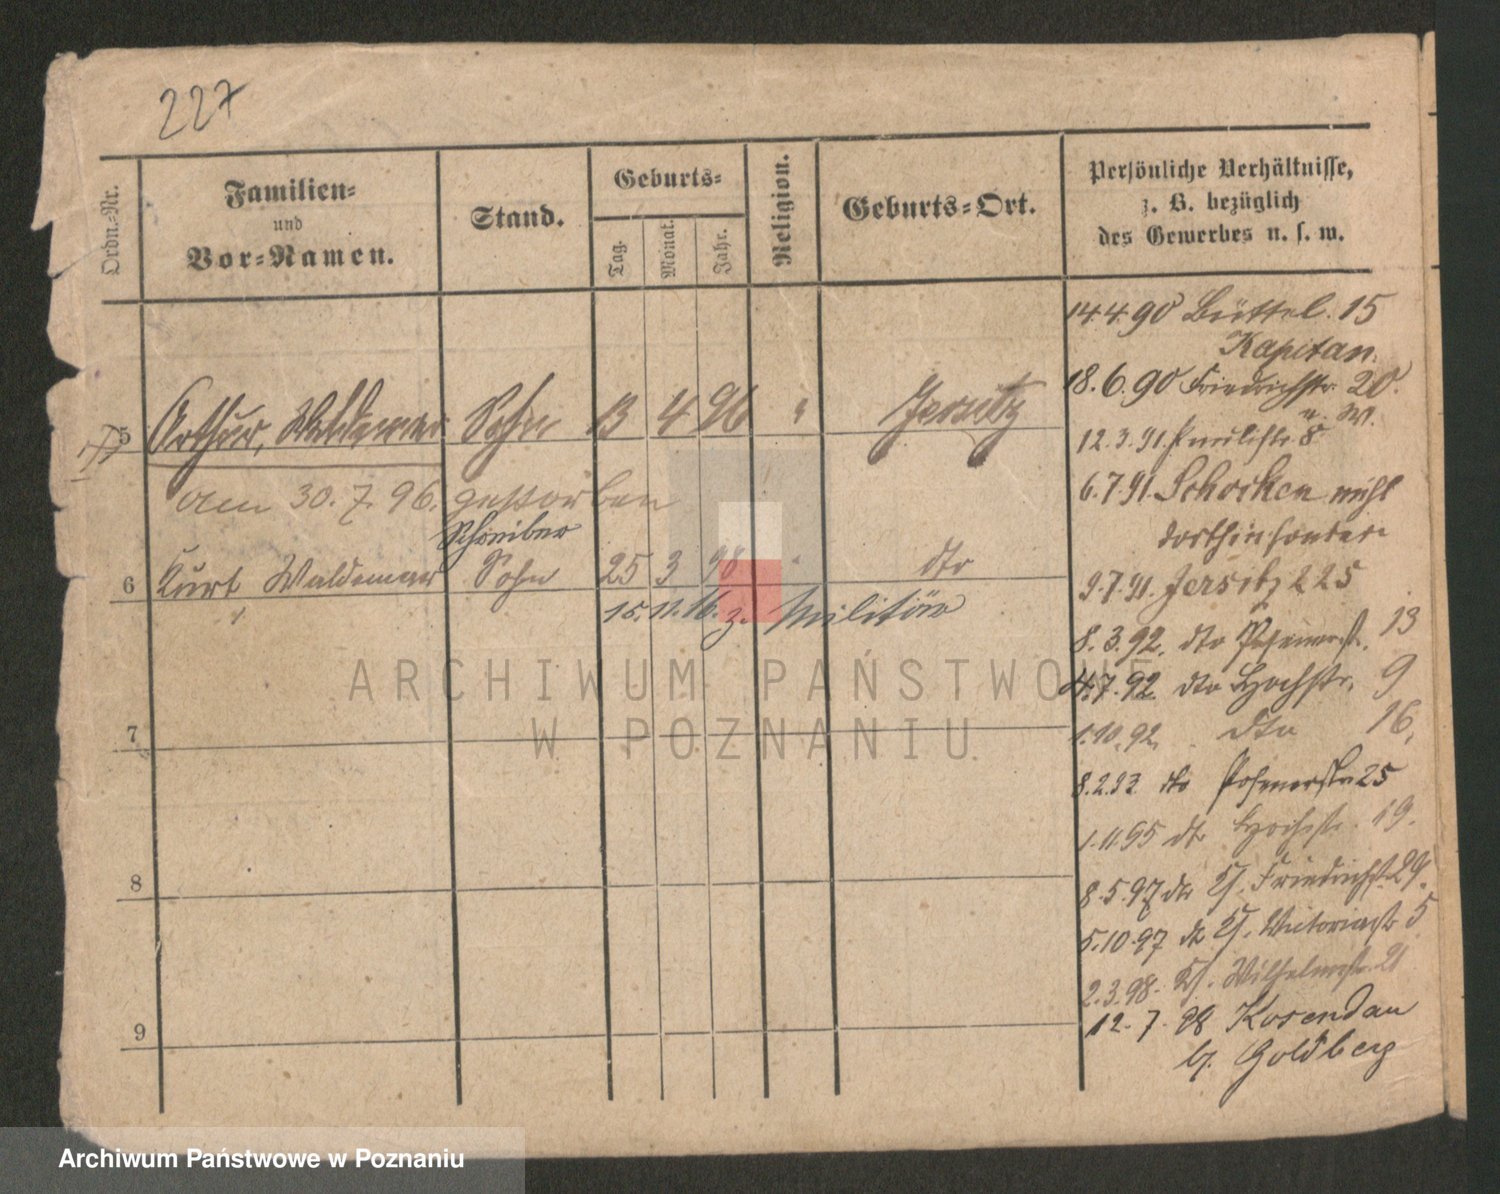 227
Ordn.-Nr.
Familien-
und
Vor-Namen.
Stand.
Geburts-
Tag.
Monat.
Jahr.
Religion.
Geburts-Ort.
Persönliche Verhältnisse,
z. B. bezüglich
des Gewerbes u. s. w.
14.4.90 Büttel. 15
Kapitan.
18.6.90 Friedrichstr. 20.
5 Arthur, Waldemar Sohn 13 4 96 " Jersitz
12.3.91. 8
am 30.7.96. gestorben
6.7.91. Schocken
Schreiber
dorthin
6 Kurt Waldemar Sohn 25 3 98 " dto
15.11.16. z. Militär
9.7.91. Jersitz 225
8.3.92. dto Posenerstr. 13
4.7.92 dto Hochstr. 9
7
1.10.92. dto 16.
8.2.93 dto Posenerstr 25
1.11.95 dto Hochstr. 19.
8
8.5.97 dto Friedrichstr. 29.
5.10.97 dto Victoriastr 5
2.3.98. Wilhelmstr. 21
9
12.7.98 Kosendau
b/. Goldberg
ARCHIWUM PAŃSTWOWE
W POZNANIU
Archiwum Państwowe w Poznaniu